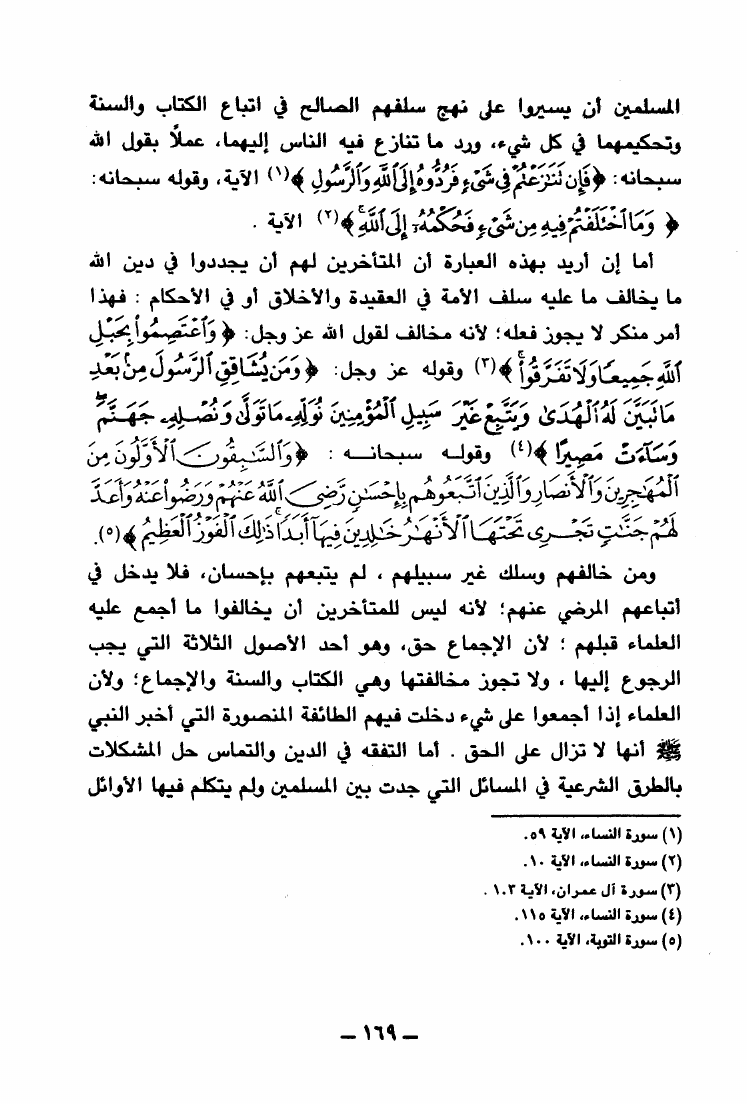 المسلمين أن يسيروا على نهج سلفهم الصالح في اتباع الكتاب والسنة
وتحكيمهما في كل شيء، ورد ما تنازع فيه الناس إليهما، عملاً بقول الله
سبحانه: ﴿فَإِن تَنَٰزَعۡتُمۡ فِي شَيۡءٖ فَرُدُّوهُ إِلَى ٱللَّهِ وَٱلرَّسُولِ﴾(١) الآية، وقوله سبحانه:
﴿وَمَا ٱخۡتَلَفۡتُمۡ فِيهِ مِن شَيۡءٖ فَحُكۡمُهُۥٓ إِلَى ٱللَّهِۚ﴾(٢) الآية .
أما إن أريد بهذه العبارة أن المتأخرين لهم أن يجددوا في دين الله
ما يخالف ما عليه سلف الأمة في العقيدة والأخلاق أو في الأحكام : فهذا
أمر منكر لا يجوز فعله؛ لأنه مخالف لقول الله عز وجل: ﴿وَٱعۡتَصِمُواْ بِحَبۡلِ
ٱللَّهِ جَمِيعٗا وَلَا تَفَرَّقُواْۚ﴾(٣) وقوله عز وجل: ﴿وَمَن يُشَاقِقِ ٱلرَّسُولَ مِنۢ بَعۡدِ
مَا تَبَيَّنَ لَهُ ٱلۡهُدَىٰ وَيَتَّبِعۡ غَيۡرَ سَبِيلِ ٱلۡمُؤۡمِنِينَ نُوَلِّهِۦ مَا تَوَلَّىٰ وَنُصۡلِهِۦ جَهَنَّمَۖ
وَسَآءَتۡ مَصِيرًا﴾(٤) وقوله سبحانه : ﴿وَٱلسَّٰبِقُونَ ٱلۡأَوَّلُونَ مِنَ
ٱلۡمُهَٰجِرِينَ وَٱلۡأَنصَارِ وَٱلَّذِينَ ٱتَّبَعُوهُم بِإِحۡسَٰنٖ رَّضِيَ ٱللَّهُ عَنۡهُمۡ وَرَضُواْ عَنۡهُ وَأَعَدَّ
لَهُمۡ جَنَّٰتٖ تَجۡرِي تَحۡتَهَا ٱلۡأَنۡهَٰرُ خَٰلِدِينَ فِيهَآ أَبَدٗاۚ ذَٰلِكَ ٱلۡفَوۡزُ ٱلۡعَظِيمُ﴾(٥).
ومن خالفهم وسلك غير سبيلهم ، لم يتبعهم بإحسان، فلا يدخل في
أتباعهم المرضي عنهم؛ لأنه ليس للمتأخرين أن يخالفوا ما أجمع عليه
العلماء قبلهم ؛ لأن الإجماع حق، وهو أحد الأصول الثلاثة التي يجب
الرجوع إليها ، ولا تجوز مخالفتها وهي الكتاب والسنة والإجماع؛ ولأن
العلماء إذا أجمعوا على شيء دخلت فيهم الطائفة المنصورة التي أخبر النبي
ﷺ أنها لا تزال على الحق . أما التفقه في الدين والتماس حل المشكلات
بالطرق الشرعية في المسائل التي جدت بين المسلمين ولم يتكلم فيها الأوائل
(١) سورة النساء، الآية ٥٩.
(٢) سورة النساء، الآية ١٠.
(٣) سورة آل عمران، الآية ١٠٣ .
(٤) سورة النساء، الآية ١١٥.
(٥) سورة التوبة، الآية ١٠٠.
– ١٦٩ –